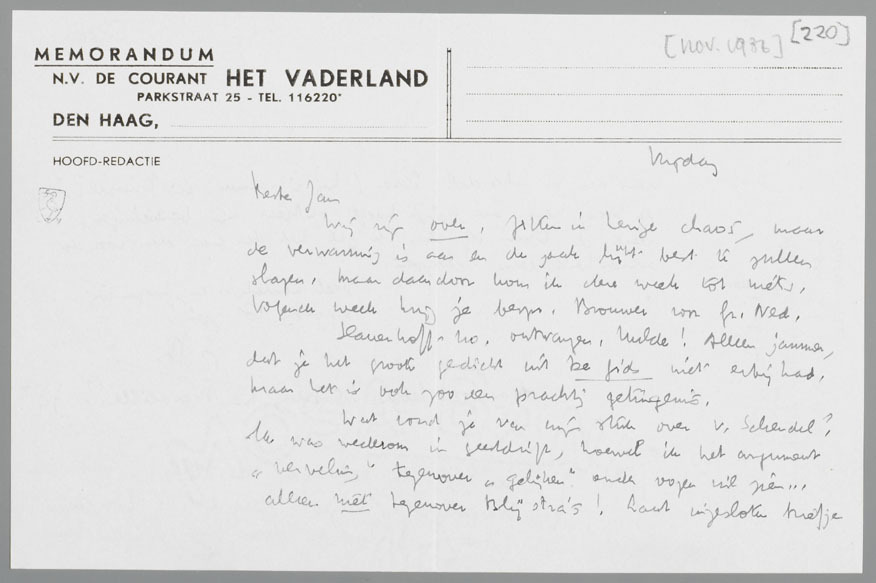 [NOV. 1936] [220]
MEMORANDUM
N.V. DE COURANT HET VADERLAND
PARKSTRAAT 25 - TEL. 116220*
DEN HAAG,
HOOFD-REDACTIE
Vrijdag
Beste Jan
Wij zijn over, zitten in hevige chaos, maar
de verwarming is aan en de zaak lijkt best te zullen
slagen, maar daardoor kom ik deze week tot niets.
Volgende week krijg je bespr. Brouwer voor Gr. Ned.
Slauerhoff-no. ontvangen, hulde! Alleen jammer,
dat je het groote gedicht uit De Gids niet erbij had,
maar het is ook zoo een prachtig getuigenis.
Wat vond je van mijn stuk over v. Schendel?
Ik was wederom in geestdrift, hoewel ik het argument
„verveling" tegenover „gelijken" onder oogen wil zien...
alleen niet tegenover Blijstra's! Laat ingesloten briefje